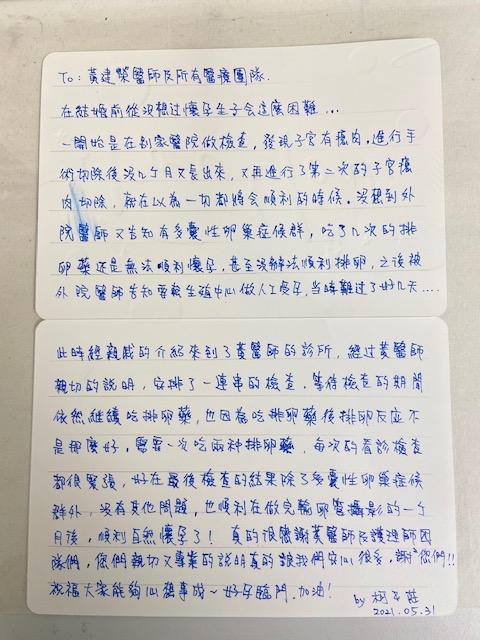 To：黃建榮醫師及所有醫療團隊.
在結婚前從沒想过懷孕生子会這麼困難...
一開始是在別家醫院做檢查，發現子宮有瘜肉，進行手
術切除後沒几个月又長出來，又再進行了第二次的子宮瘜
肉切除，就在以為一切都將会順利的時候，沒想到外
院醫師又告知有多囊性卵巢症候群，吃了几次的排
卵藥还是無法順利懷孕，甚至沒辦法順利排卵，之後被
外院醫師告知要靠生殖中心做人工受孕，当時難过了好几天....
此時經親戚的介紹來到了黃醫師的診所，經过黃醫師
親切的說明，安排了一連串的檢查，等待檢查的期間
依然維續吃排卵藥，也因為吃排卵藥後排卵反应不
是那麼好，需要一次吃兩种排卵藥，每次的看診檢查
都很緊張，好在最後檢查的結果除了多囊性卵巢症候
群外，沒有其他問題，也順利在做完輸卵管攝影的一个
月後，順利自然懷孕了！真的很感謝黃醫師及護理師团
隊們，您們親切又專業的說明真的讓我們安心很多，謝謝您們!!
祝福大家能夠心想事成～好孕臨門.加油!
by 柯
2021.05.31